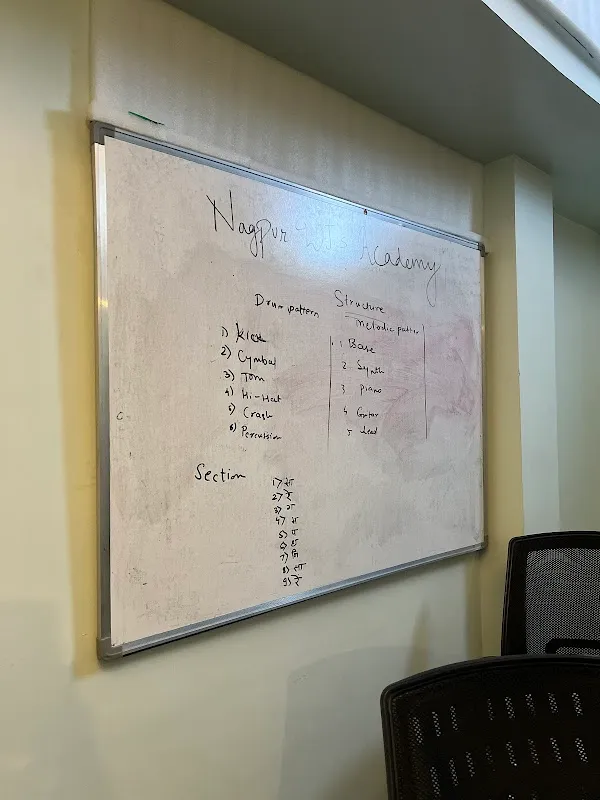 Nagpur DJ's Academy
Structure
Drum pattern
1) Kick
2) Cymbal
3) Tom
4) Hi-Hat
5) Crash
6) Percussion
Melodic pattern
1 Base
2 Synth
3 Piano
4 Guitar
5 Lead
Section
1) सा
2) रे
3) ग
4) म
5) प
6) ध
7) नि
8) सा
9) रे